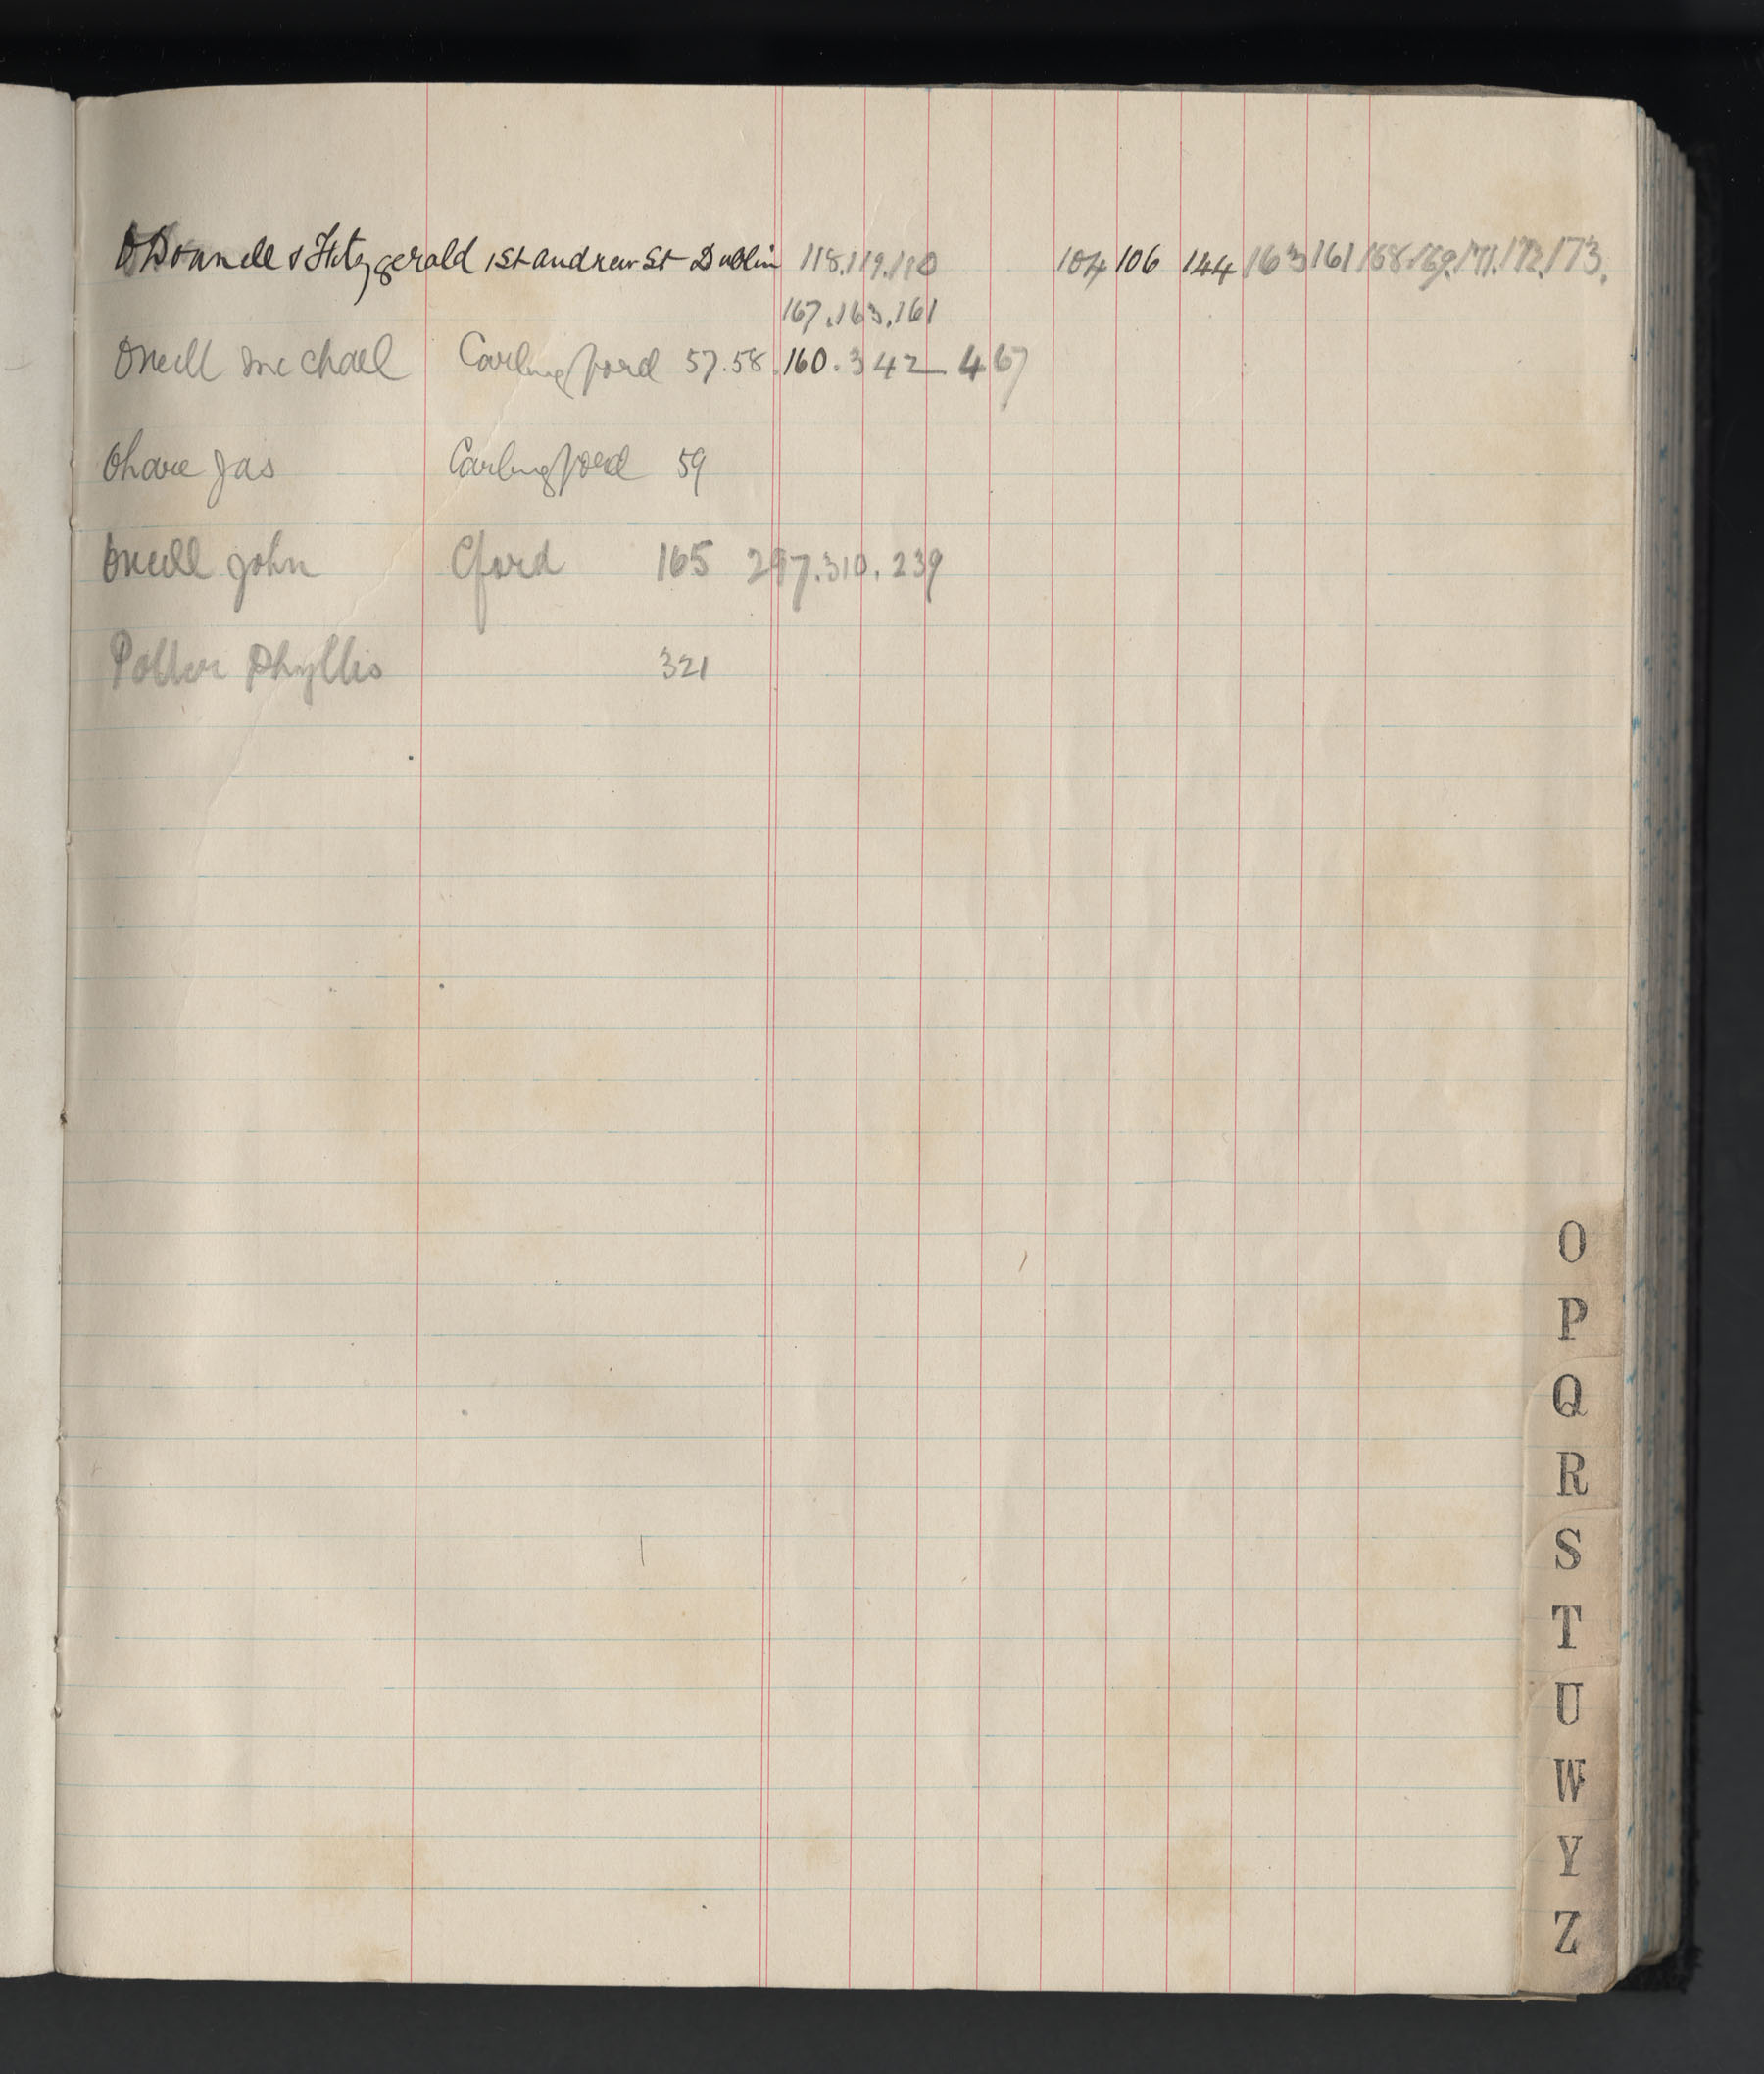 O'Donnell & Fitzgerald 1 St Andrew St Dublin 118.119.110 104 106 144 163 161 168.169.171.172.173.
167.163.161
Oneill Michael Carlingford 57.58.160.342 467
Ohare Jas Carlingford 59
Oneill John Cford 165 297.310.239
Potter Phyllis 321
O
P
Q
R
S
T
U
W
Y
Z